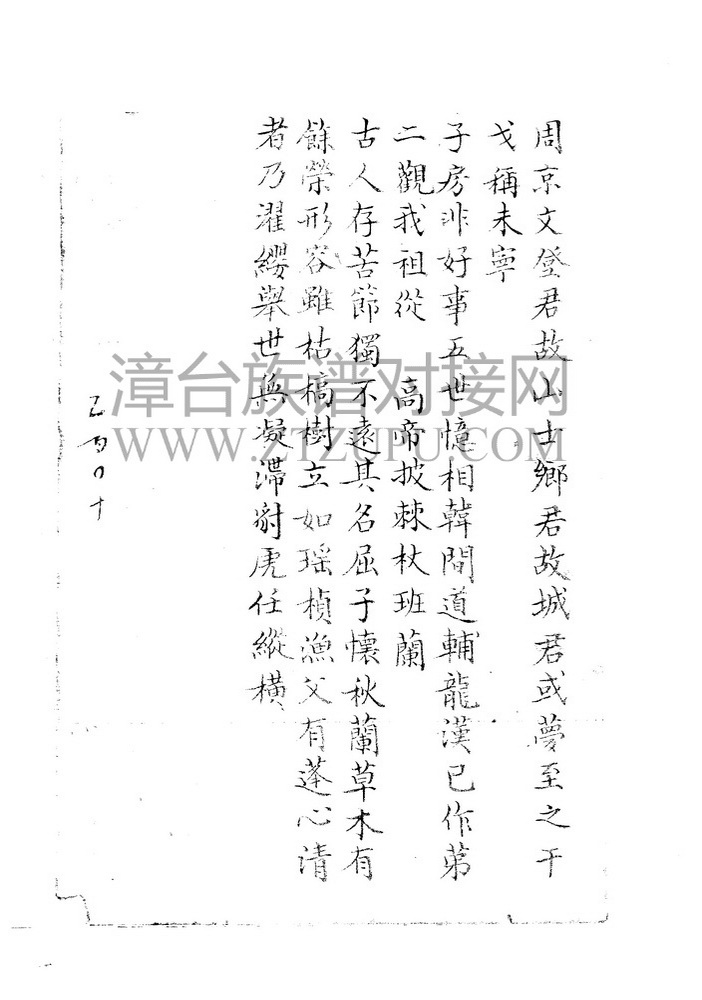 周京文登君故山士鄉君故城君或夢至之干
戈稱未寧
子房非好事五世憶相韓間道輔龍漢已作第
二觀我祖從 高帝披棘杖班蘭
古人存苦節獨不遠其名屈子懷秋蘭草木有
餘榮形容雖枯槁樹立如瑶楨漁父有蓬心清
者乃濯纓舉世無凝滯豺虎任縱橫
漳台族谱对接网
WWW.ZTZUPU.COM